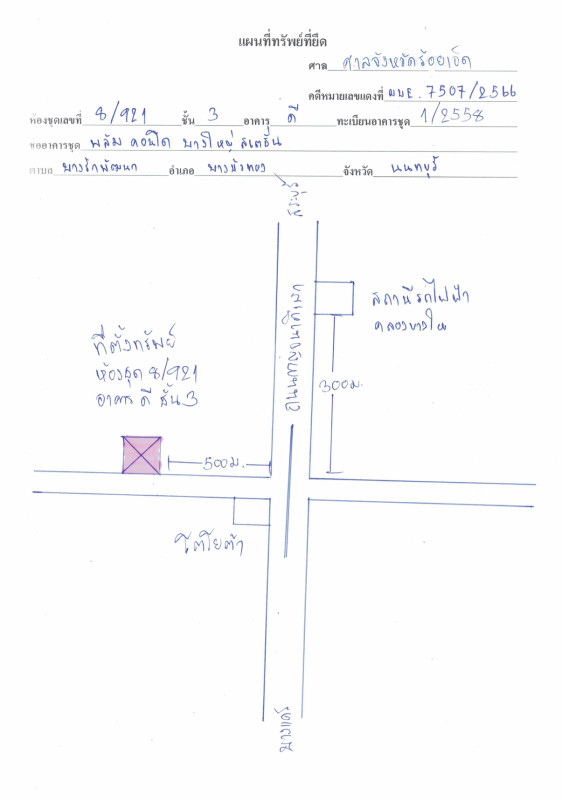 แผนที่ทรัพย์ที่ยึด
ศาล ศาลจังหวัดร้อยเอ็ด
คดีหมายเลขแดงที่ ผบE. 7507/2566
ห้องชุดเลขที่ 8/921 ชั้น 3 อาคาร ดี ทะเบียนอาคารชุด 1/2558
ชื่ออาคารชุด พลัม คอนโด บางใหญ่ สเตชั่น
ตำบล บางรักพัฒนา อำเภอ บางบัวทอง จังหวัด นนทบุรี
ถนนกาญจนาภิเษก
สถานีรถไฟฟ้า
คลองบางไผ่
ที่ตั้งทรัพย์
ห้องชุด 8/921
อาคาร ดี ชั้น 3
300ม.
500ม.
โตโยต้า
บางแค